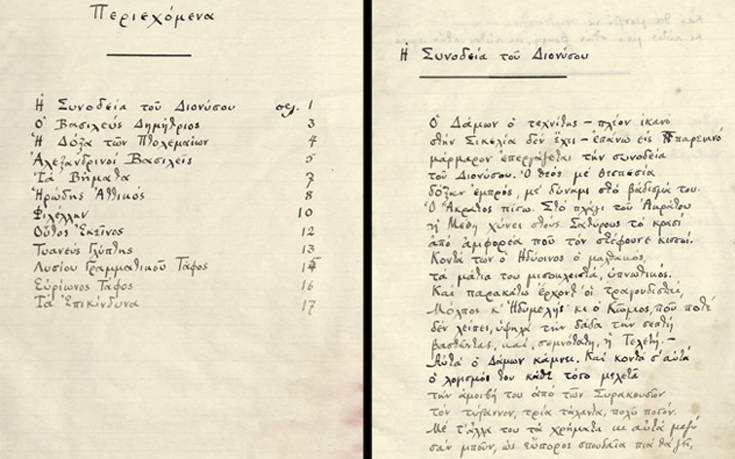 Περιεχόμενα
Ἡ Συνοδεία τοῦ Διονύσου σελ. 1
Ὁ Βασιλεὺς Δημήτριος 3
Ἡ Δόξα τῶν Πτολεμαίων 4
Ἀλεξανδρινοὶ Βασιλεῖς 5
Τὰ Βήματα 7
Ἡρώδης Ἀττικός 8
Φιλέλλην 10
Οὗτος Ἐκεῖνος 12
Τυανεὺς Γλύπτης 13
Λυσίου Γραμματικοῦ Τάφος 15
Εὐρίωνος Τάφος 16
Τὰ Ἐπικίνδυνα 17
Ἡ Συνοδεία τοῦ Διονύσου
Ὁ Δάμων ὁ τεχνίτης – πλέον ἱκανὸ
στὴν Σικελία δὲν ἔχει – ἐπάνω εἰς παρθηνὸ
μάρμαρον ἐπεργάζεται τὴν συνοδεία
τοῦ Διονύσου. Ὁ θεὸς μὲ θεσπεσία
δόξαν ἐμπρός, μὲ δύναμι στὸ βάδισμά του.
Ὁ Ἄκρατος πίσω. Στὸ πλάγι τοῦ Ἀκράτου
ἡ Μέθη χύνει στοὺς Σατύρους τὸ κρασὶ
ἀπὸ ἀμφορέα ποὺ τὸν στέφουνε κισσοί.
Κοντά των ὁ Ἡδύοινος ὁ μαλθακός,
τὰ μάτια του μισοκλειστά, ὑπνωτικός.
Καὶ παρακάτω ἔρχοντ' οἱ τραγουδισταί,
Μόλπος κ' Ἡδυμελής, κι ὁ Κῶμος, ποὺ ποτὲ
δὲν λείπει, ὑψηλὰ τὴν δᾶδα τὴν σεπτὴ
βαστῶντας, καί, σεμνοτάτη, ἡ Τελετή.–
Αὐτὰ ὁ Δάμων κάμνει. Καὶ κοντὰ σ' αὐτὰ
ὁ λογισμός του κάθε τόσο μελετᾶ
τὴν ἀμοιβή του ἀπὸ τῶν Συρακουσῶν
τὸν τύραννον, τρία τάλαντα, πολὺ ποσόν.
Μὲ τἄλλα του τὰ χρήματα κι αὐτὰ μαζὺ
σὰν μποῦν, ὡς εὔπορος σπουδαῖα πιὰ θὰ ζῇ,